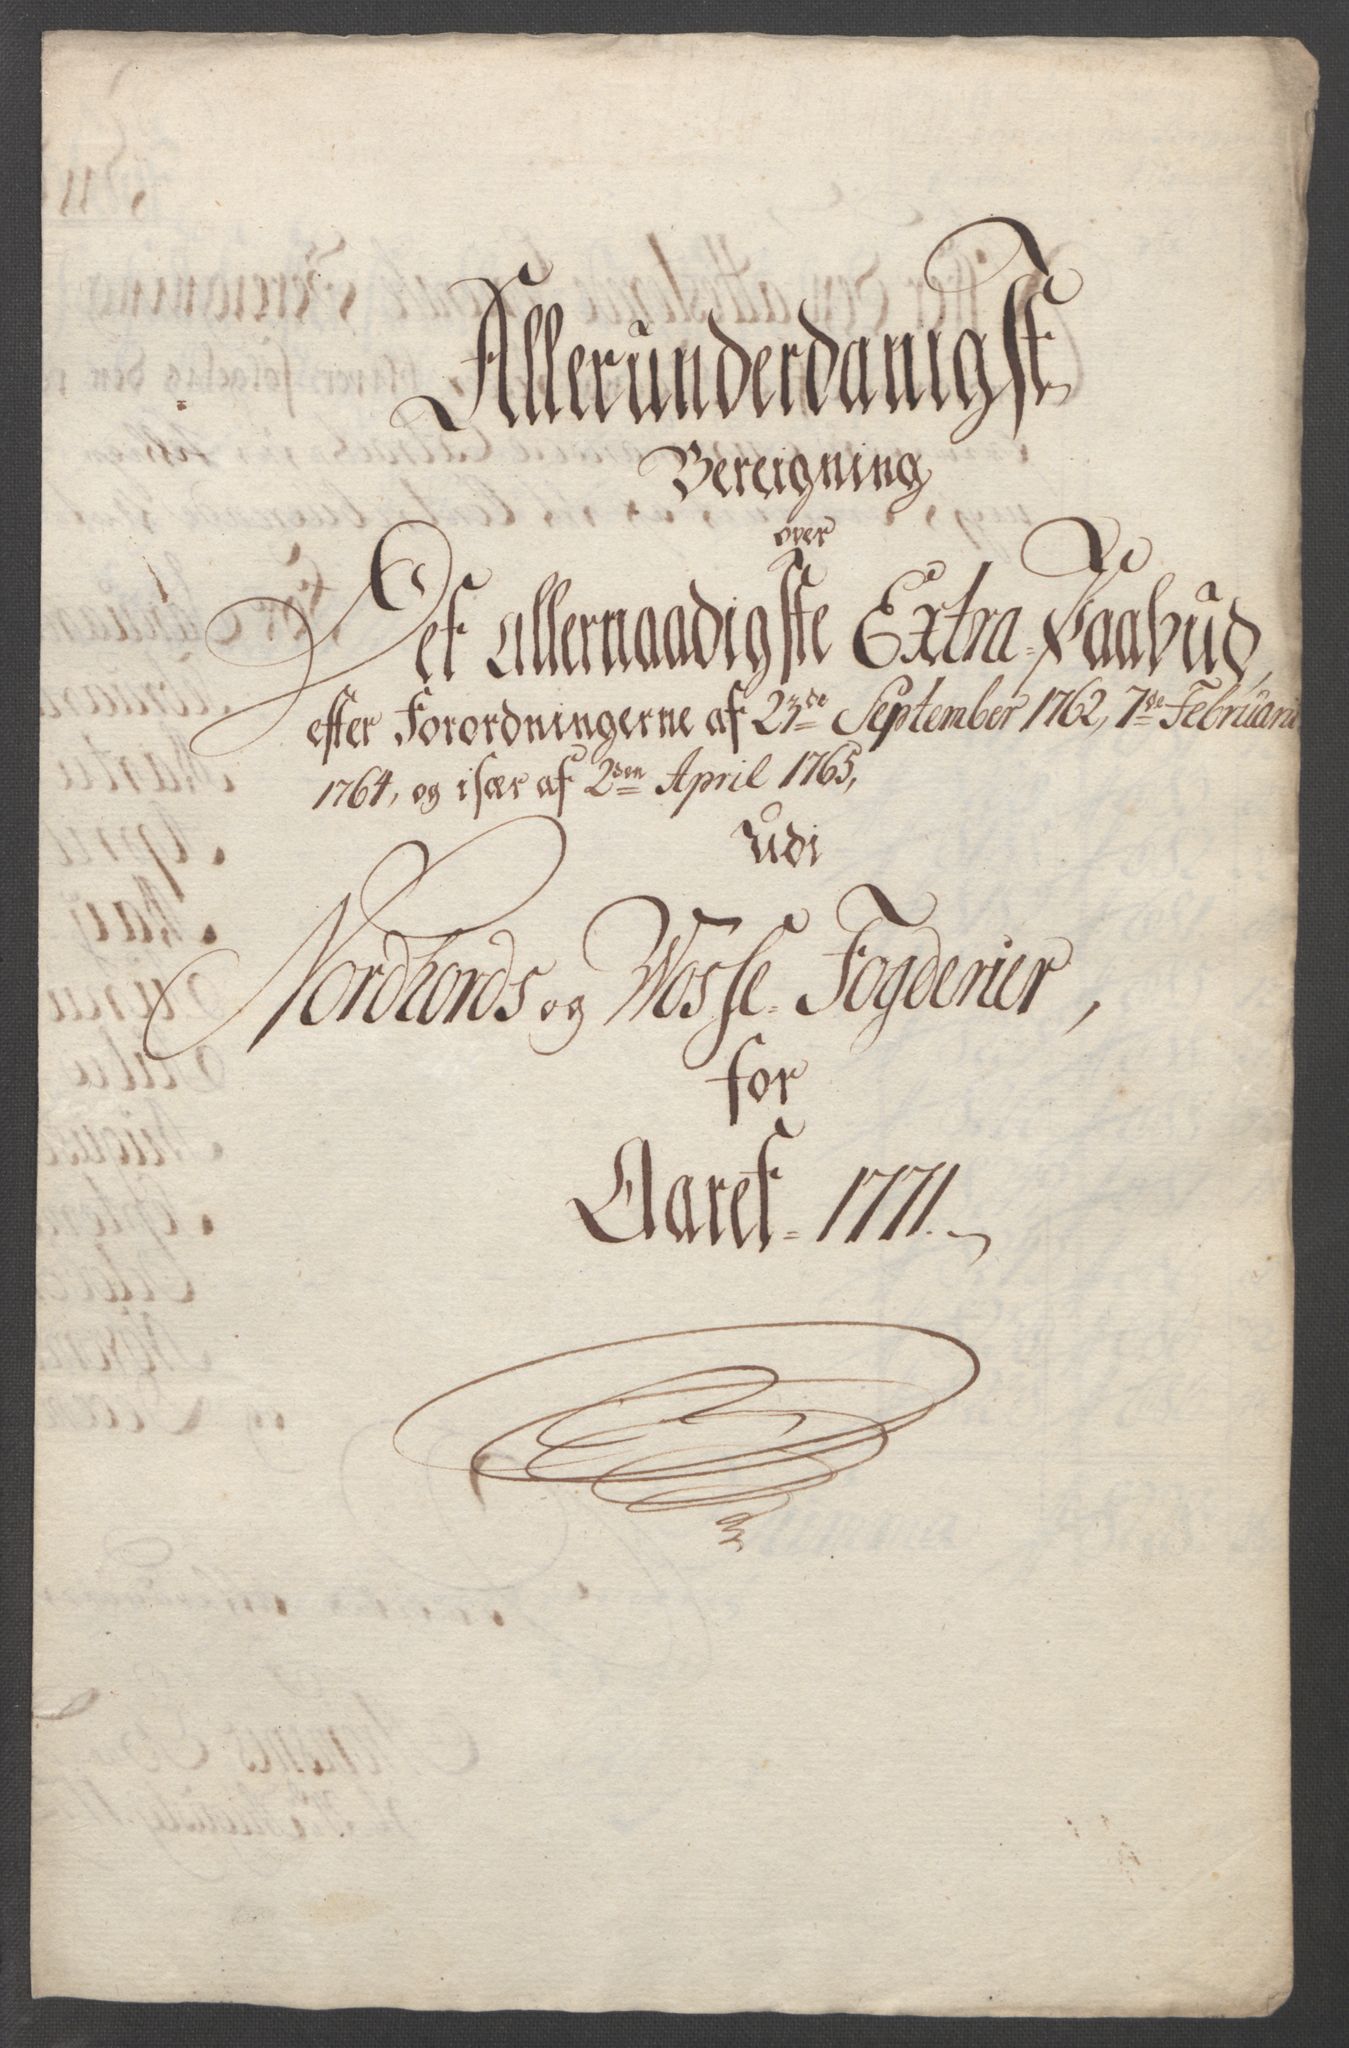 Allerunderdanigst
Bereigning
over
Det Allernaadigste Extra-Paabud,
efter Forordningerne af 23de September 1762, 7de Februarii
1764, og især af 2den April 1765,
udi
Nordhords og Wosse-Fogderier,
for
Aaret 1771.